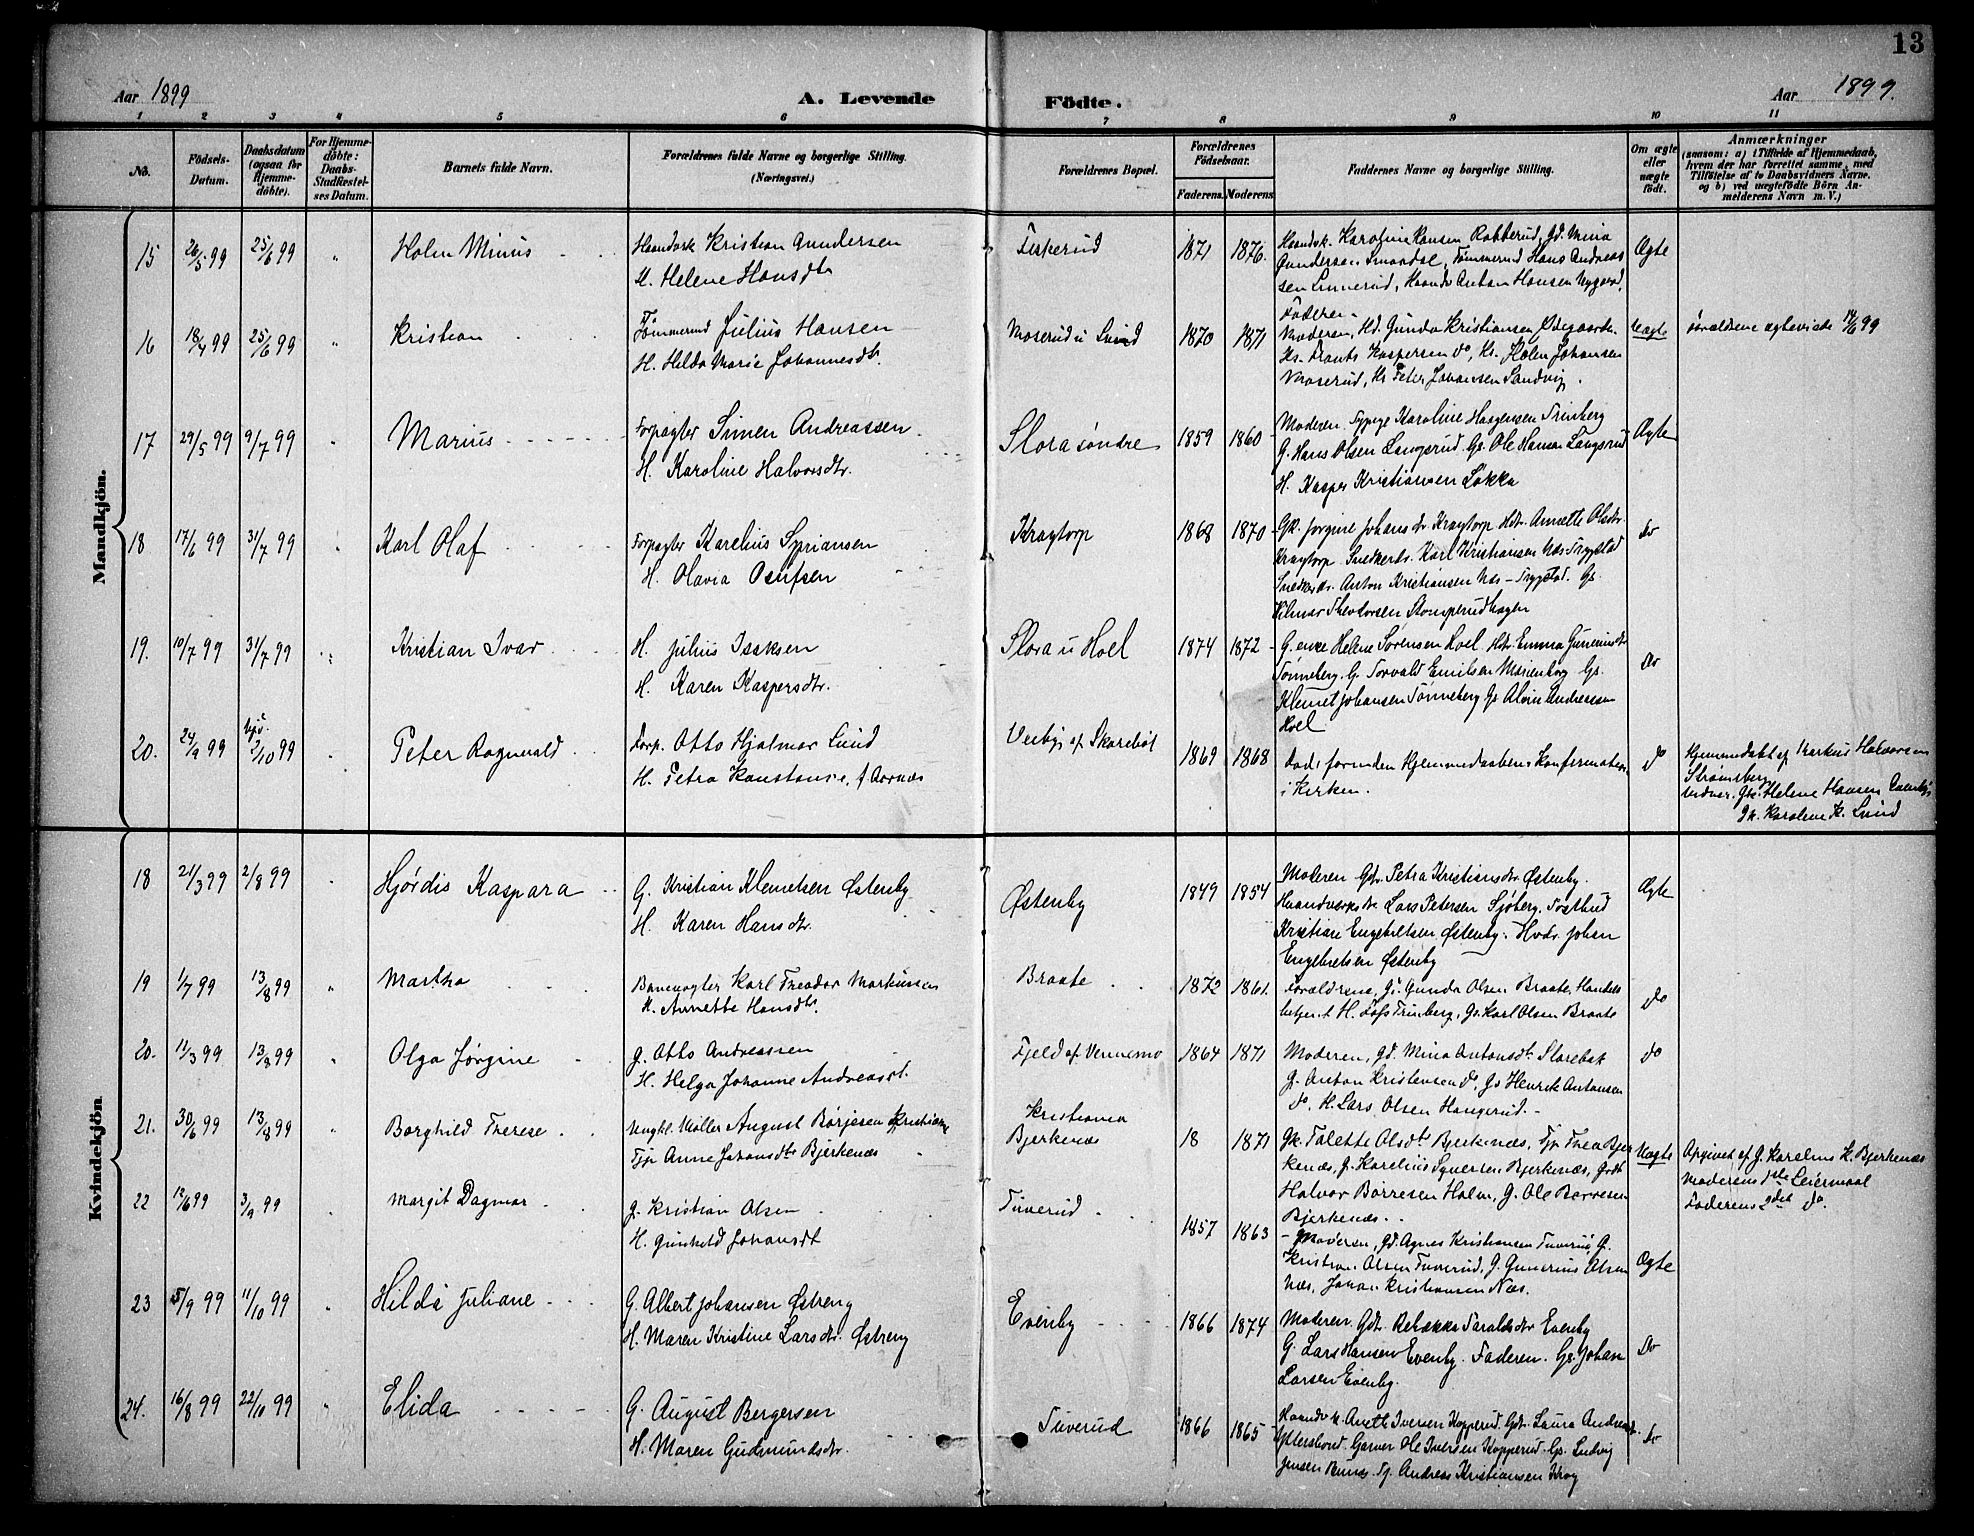 13
Aar 1899
A. Levende
Födte.
Aar 1899.
1 2 3 4 5 6 7 8 9 10 11
No.
Födsels-
Datum.
Daabsdatum
(ogsaa for
Hjemme-
döbte).
For Hjemme-
döbte:
Daabs-
Stadfæstel-
ses Datum.
Barnets fulde Navn.
Forældrenes fulde Navne og borgerlige Stilling.
(Næringsvei.)
Forældrenes Bopæl.
Forældrenes
Födselsaar.
Faderens. Moderens.
Faddernes Navne og borgerlige Stilling.
Om ægte
eller
uægte
födt.
Anmærkninger
(saasom: a) i Tilfælde af Hjemmedaab,
hvem der har forrettet samme, med
Tilföielse af to Daabsvidners Navne.
og b) ved uægtefödte Börn An-
melderens Navn m. V.)
Mandkjön.
15 26/5 99 25/6 99 " Holm Minius
Haandv. Kristian Gundersen
H. Helene Hansdtr
Fiskerud 1871 1876.
Haandv. Karoline Hansen Robberud, Gd. Mina
Gundersen Smordal, Tømmermd Hans Andreas
sen Linnerud, Haandv Anton Hansen Nygaard,
Faderen
Ægte
16 18/4 99 25/6 99 " Kristian
Tømmermd Julius Hansen
H. Hilda Marie Johannesdtr.
Moserud u Lund 1870 1871
Moderen, Hd. Gunda Kristiansen Ødegaarden
Ks. Frants Kaspersen do, Ks. Holm Johansen
Moserud, Ks Peter Johansen Sandvig.
Uægte
Forældrene ægteviede 14/6 99
17 29/5 99 9/7 99 " Marius
Forpagter Simen Andreassen
H. Karoline Halvorsdtr.
Slora søndre 1859 1860
Moderen. Sypige Karoline Haagensen Trinberg
G. Hans Olsen Langsrud Gs. Ole Hansen Langsrud
H. Kasper Kristiansen Løkka
Ægte
18 17/6 99 31/7 99 " Karl Olaf
Forpagter Karelius Syversen
H. Olavia Osulfsen
Kragtorp 1868 1870
Gk. Jørgine Johansdr Kragtorp Hdr. Annette Olsdtr.
Kragtorp Snedkersv. Karl Kristiansen Næs-Trygstad
Snedkersv. Anton Kristiansen Næs-Trygstad. Gs.
Hilmar Theodorsen Stomperudhagen
do
19. 10/7 99 31/7 99 " Kristian Ivar
H. Julius Isaksen
H. Karen Kaspersdtr.
Slora u Hoel 1874 1872
G. enke Helene Sørensen Hoel. Hdr. Emma Gunerius dtr
Tønneberg. G. Torvald Emilsen Marienborg Gs.
Klemet Johansen Tønneberg Gs Alvin Andreassen
Hoel
do
20. 24/9 99 Hjd. 2/10 99 Peter Ragnvald
Forp. Otto Hjalmar Lund
H. Petra Konstanse, f. Aarnæs
Veiby af Skarebøl 1869 1868
Død, forinden Hjemmedaabens Konfirmation
i Kirken.
do
Hjemmedøbt af Markus Halvorsen
Strømsberg
Vidner. Gk. Helene Hansen Evenby,
Gk. Karoline K. Lund
Kvindekjön
18 21/3 99 2/8 99 Hjørdis Kaspara
G. Kristian Klemetsen Østenby
H. Karen Hansdtr.
Østenby 1849 1854
Moderen Gdr. Petra Kristiansdtr Østenby.
Haandverksm. Lars Petersen Sjøberg. Postbud
Kristian Engebretsen Østenby. Hvdr. Johan
Engebretsen Østenby
Ægte
19 1/7 99 13/8 99 " Martha
Banevogter Karl Theodor Markussen
H. Annette Hansdtr
Braate 1872 1861.
Forældrene, Gd. Gunda Olsen Braate, Handels
betjent H. Trinberg, Gs. Karl Olsen Braate
do
20. 11/3 99 13/8 99 " Olga Jørgine
G. Otto Andreassen
H. Helga Johanne Andreasdt.
Fjeld af Vennemo 1864 1871
Moderen, Gd. Mina Antonsdt. Slorebæk
G. Anton Kristensen do, Gs Henrik Antonsen
do, H. Lars Olsen Hangerud.
do
21. 30/6 99 13/8 99 " Borghild Therese
Ungkl. Møller August Børjesen Kristiania
Tjp Anne Johansdtr Bjerkenæs
Kristiania
Bjerkenæs 18 1871
Gk. Talette Olsdtr Bjerkenæs, Tjp Thea Bjer
kenæs, G. Karelius Syversen Bjerkenæs,
Halvor Børresen Holm, G. Ole Børresen
Bjerkenæs.
Uægte
Opgivet af G. Karelius K. Bjerkenæs
Moderens 1ste Leiermaal
Faderens 2det do.
22 12/6 99 3/9 99 Margit Dagmar
G. Kristian Olsen
H. Gunhild Johansdt
Tuverud 1857 1863
Moderen, Gd. Agnes Kristiansen Tuverud G.
Kristian Olsen Tuverud, G. Gunerius Olsen
Næs, Johan Kristiansen Næs.
Ægte
23 5/9 99 11/10 99 " Hilda Juliane
G. Albert Johansen Østreng
H. Maren Kristine Larsdtr. Østreng
Evenby 1866 1874
Moderen. Gdr. Rebækka Taraldsdtr Evenby
G. Lars Hansen Evenby. Faderen. Gs. Johan
Larsen Evenby.
Do
24. 16/8 99 22/10 99 " Elida
G. August Bergersen
H. Maren Gudmundsdtr.
Tuverud 1866 1865
Haandv k. Anette Iversen Kopperud. Gdr. Laura Andreasdtr.
Ytterskod. Garver Ole Iversen Kopperud. Gs. Ludvig
Jensen Tj. Andreas Kristiansen Krog
do